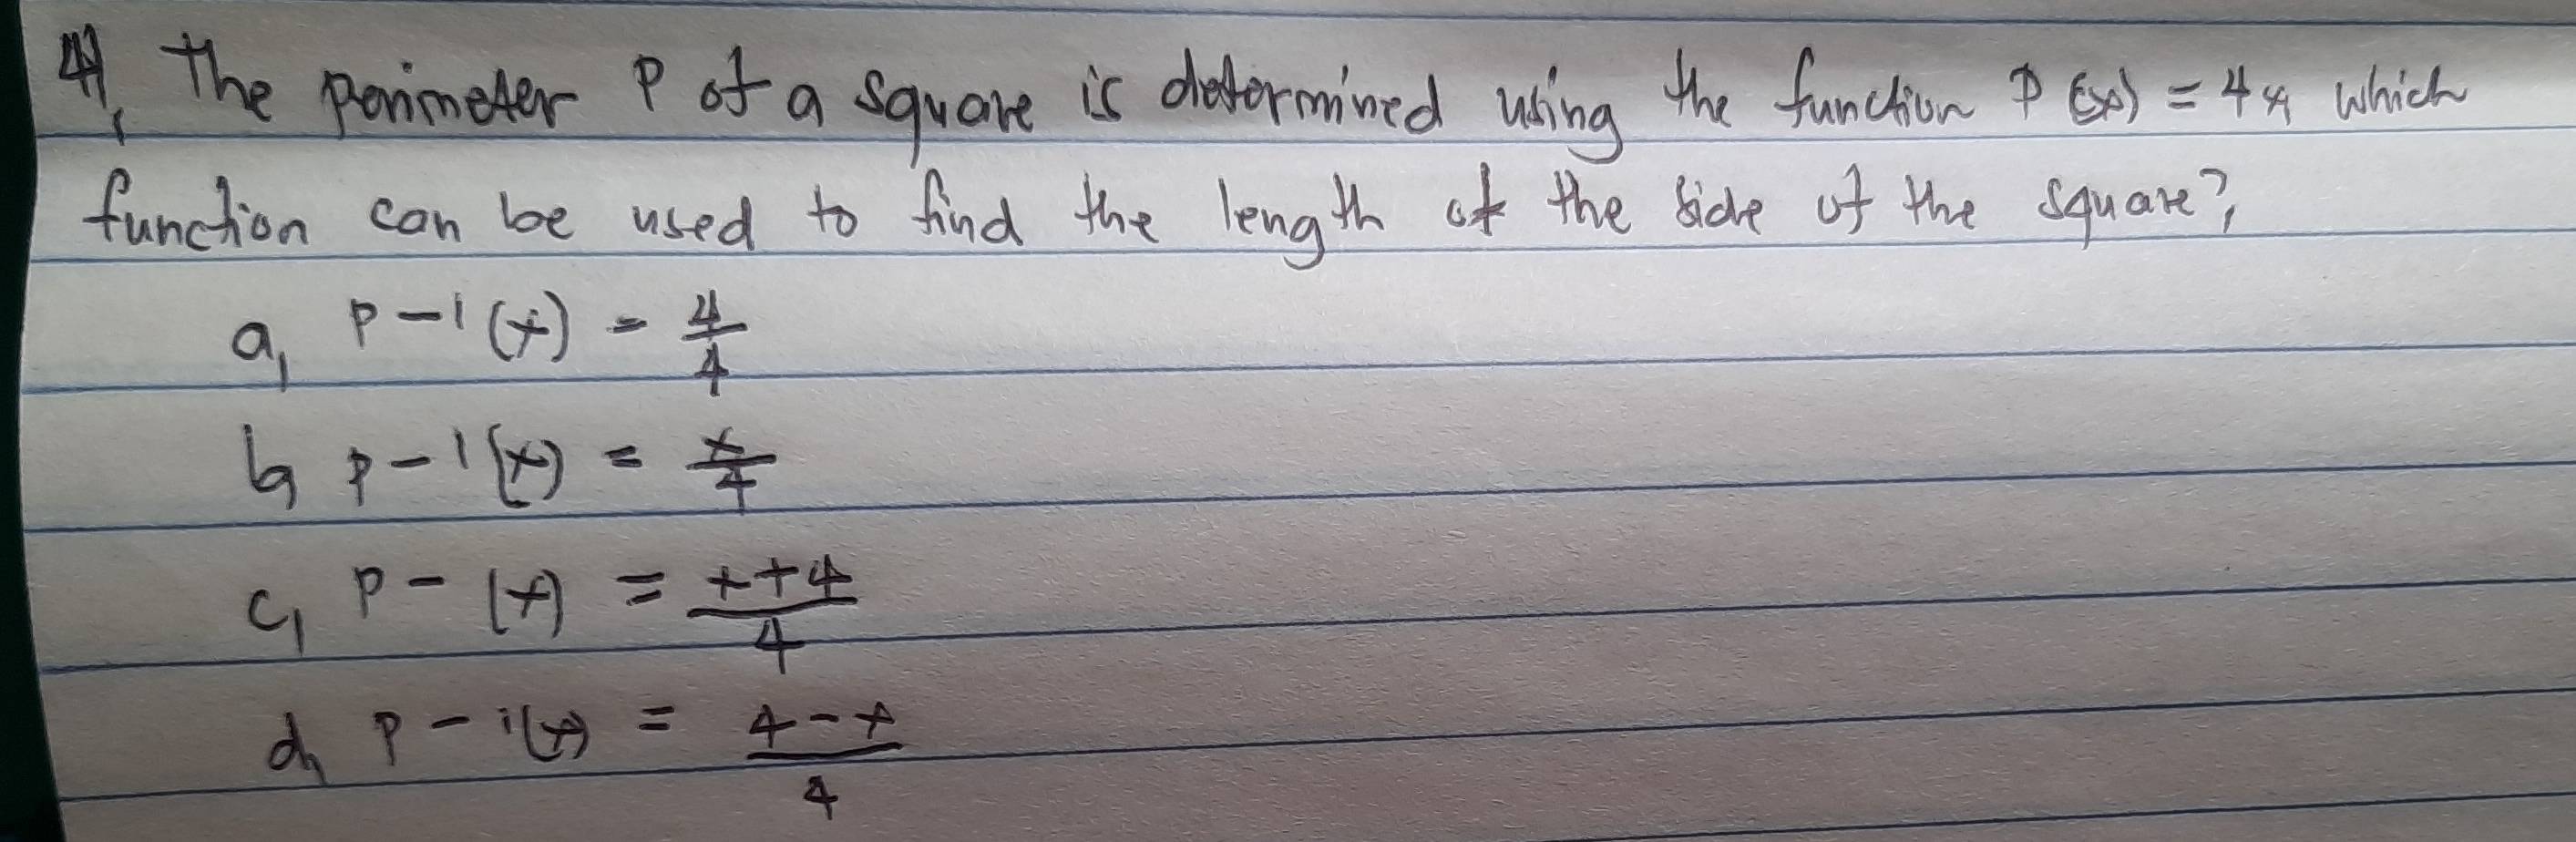 4, The perimeter P of a square is determined using the function P(x) = 4x which
function can be used to find the length of the side of the square?,
a, P-1(x) = 4/4
b, P-1(x) = x/4
c, P-(x) = x+4/4
d, P-1(x) = 4-x/4